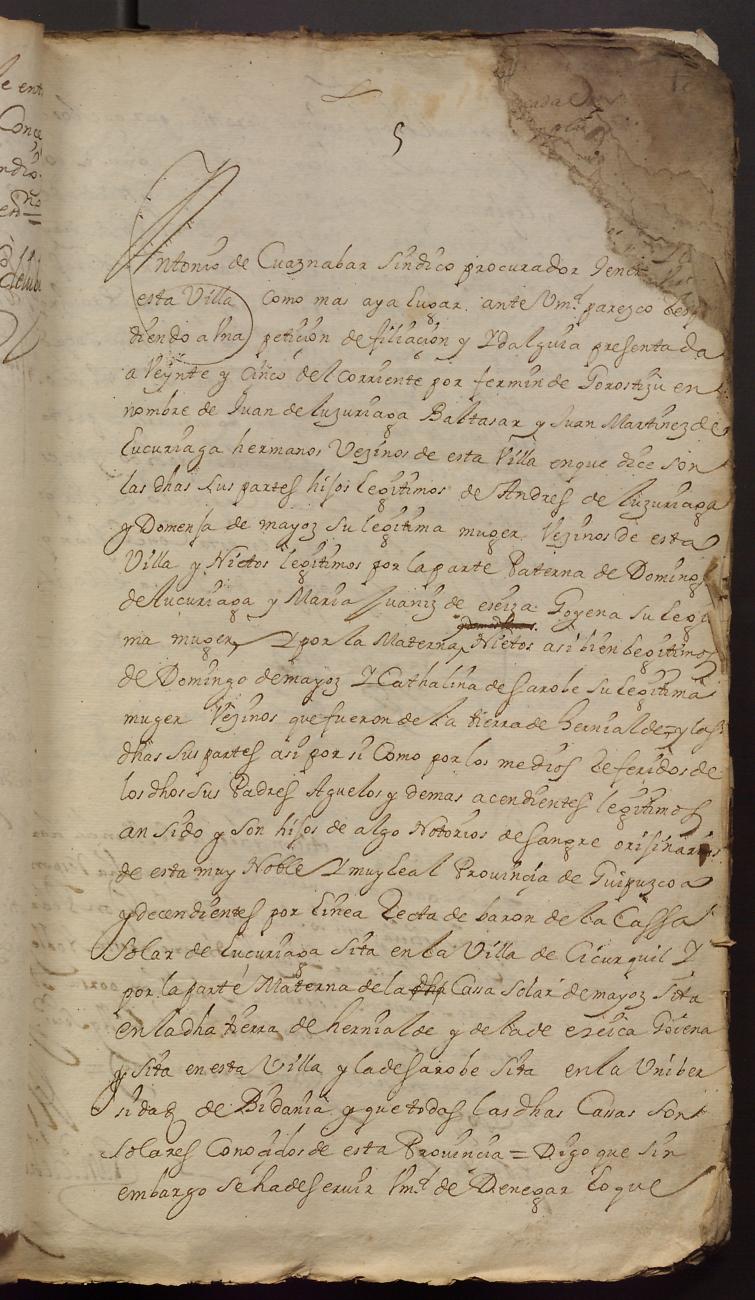 5
Antonio de Cuaznabar Sindico procurador Jene
esta Villa como mas aya lugar ante Vmd parezco
diendo a Una peticion de filiacion y Ydalguia presentada
a Veynte y cinco del corriente por fermin de Gorostizu en
nombre de Juan de luzuriaga Baltasar y Juan Martinez de
Lucuriaga hermanos Vezinos de esta Villa en que dice son
las dhas sus partes hijos legitimos de Andres de luzuriaga
y Domensa de mayoz su legitima muger Vezinos de esta
Villa y Nietos legitimos por la parte Paterna de Domingo
de lucuriaga y Maria Juaniz de eseiza Goyena su legi
ma muger, Y por la Materna Nietos asi bien legitimos
de Domingo de mayoz Y Cathalina de sarobe su legitima
muger Vezinos que fueron de la tierra de hernialde y las
dhas sus partes asi por si Como por los medios Referidos de
los dhos sus Padres Aguelos y demas acendientes legitimos
an sido y son hijos de algo Notorios de sangre orijinarios
de esta muy Noble Y muy leal Provincia de Guipuzcoa
y decendientes por linea Recta de baron de la Cassa
Solar de Lucuriaga Sita en la Villa de Cicurquil Y
por la parte Materna de la dha Cassa Solar de mayoz Sita
en la dha tierra de hernialde y de la de ezeica Goiena
y sita en esta Villa y la de sarobe sita en la Uniber
sidad de Bidania y que todas las dhas Casas son
Solares Conocidos de esta Provincia = Digo que sin
embargo se ha de seruir Vmd de Denegar lo que